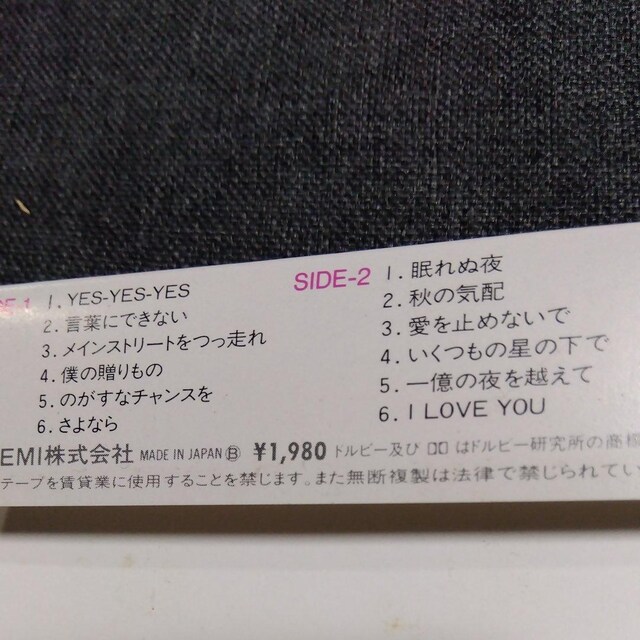 SIDE-1
1. YES-YES-YES
2. 言葉にできない
3. メインストリートをつっ走れ
4. 僕の贈りもの
5. のがすなチャンスを
6. さよなら
SIDE-2
1. 眠れぬ夜
2. 秋の気配
3. 愛を止めないで
4. いくつもの星の下で
5. 一億の夜を越えて
6. I LOVE YOU
EMI株式会社 MADE IN JAPAN Ⓑ ¥1,980 ドルビー及び □□ はドルビー研究所の商標
テープを賃貸業に使用することを禁じます。また無断複製は法律で禁じられてい